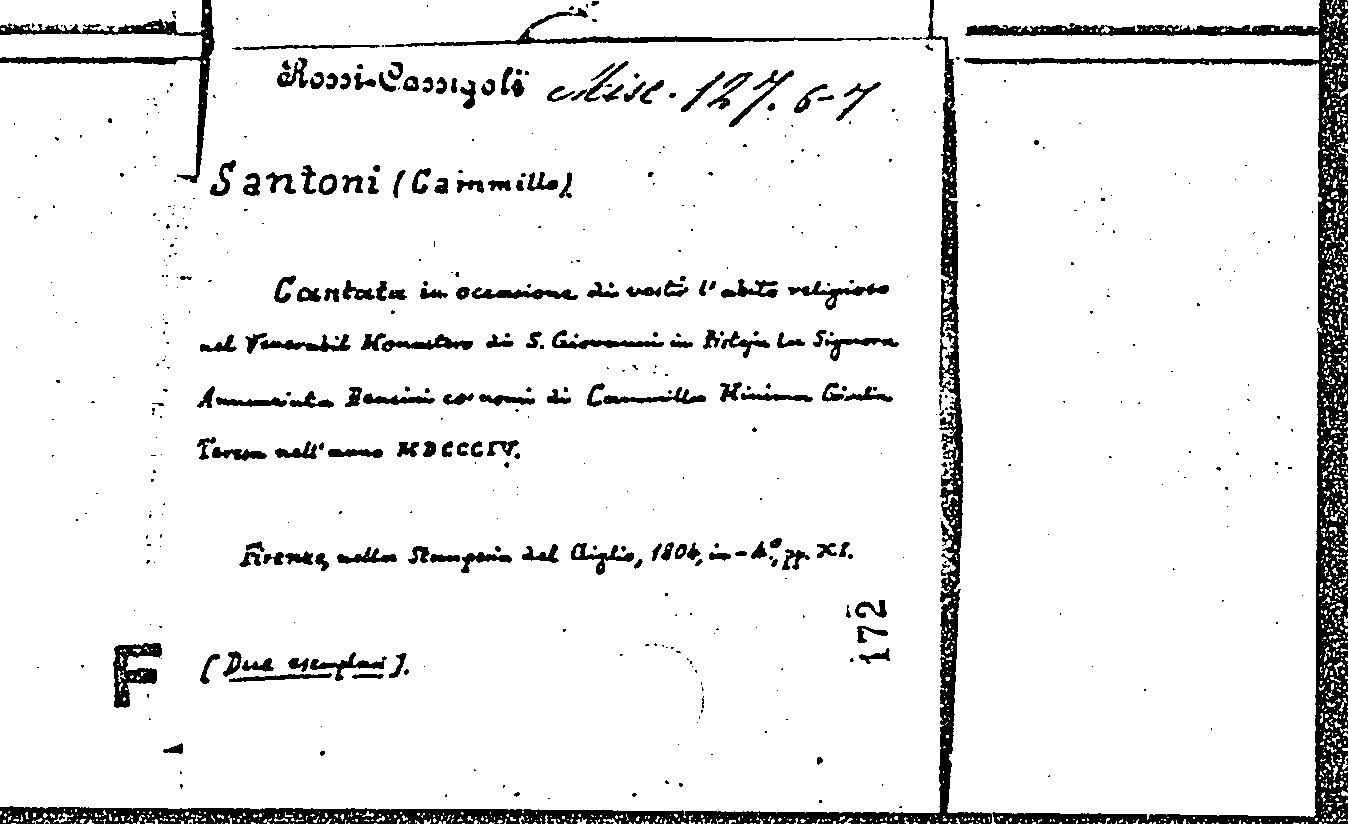 Rossi-Cassigoli Misc. 127. 6-7
Santoni (Cammillo)
Cantata in occasione di vestir l'abito religioso
nel Venerabil Monastero di S. Giovanni in Pistoja La Signora
Annunziata Bensini co' nomi di Cammilla Minima Giulia
Teresa nell'anno MDCCCIV.
Firenze, nella Stamperia del Giglio, 1804, in-4.º, pp. XI.
172
F
[Due esemplari].